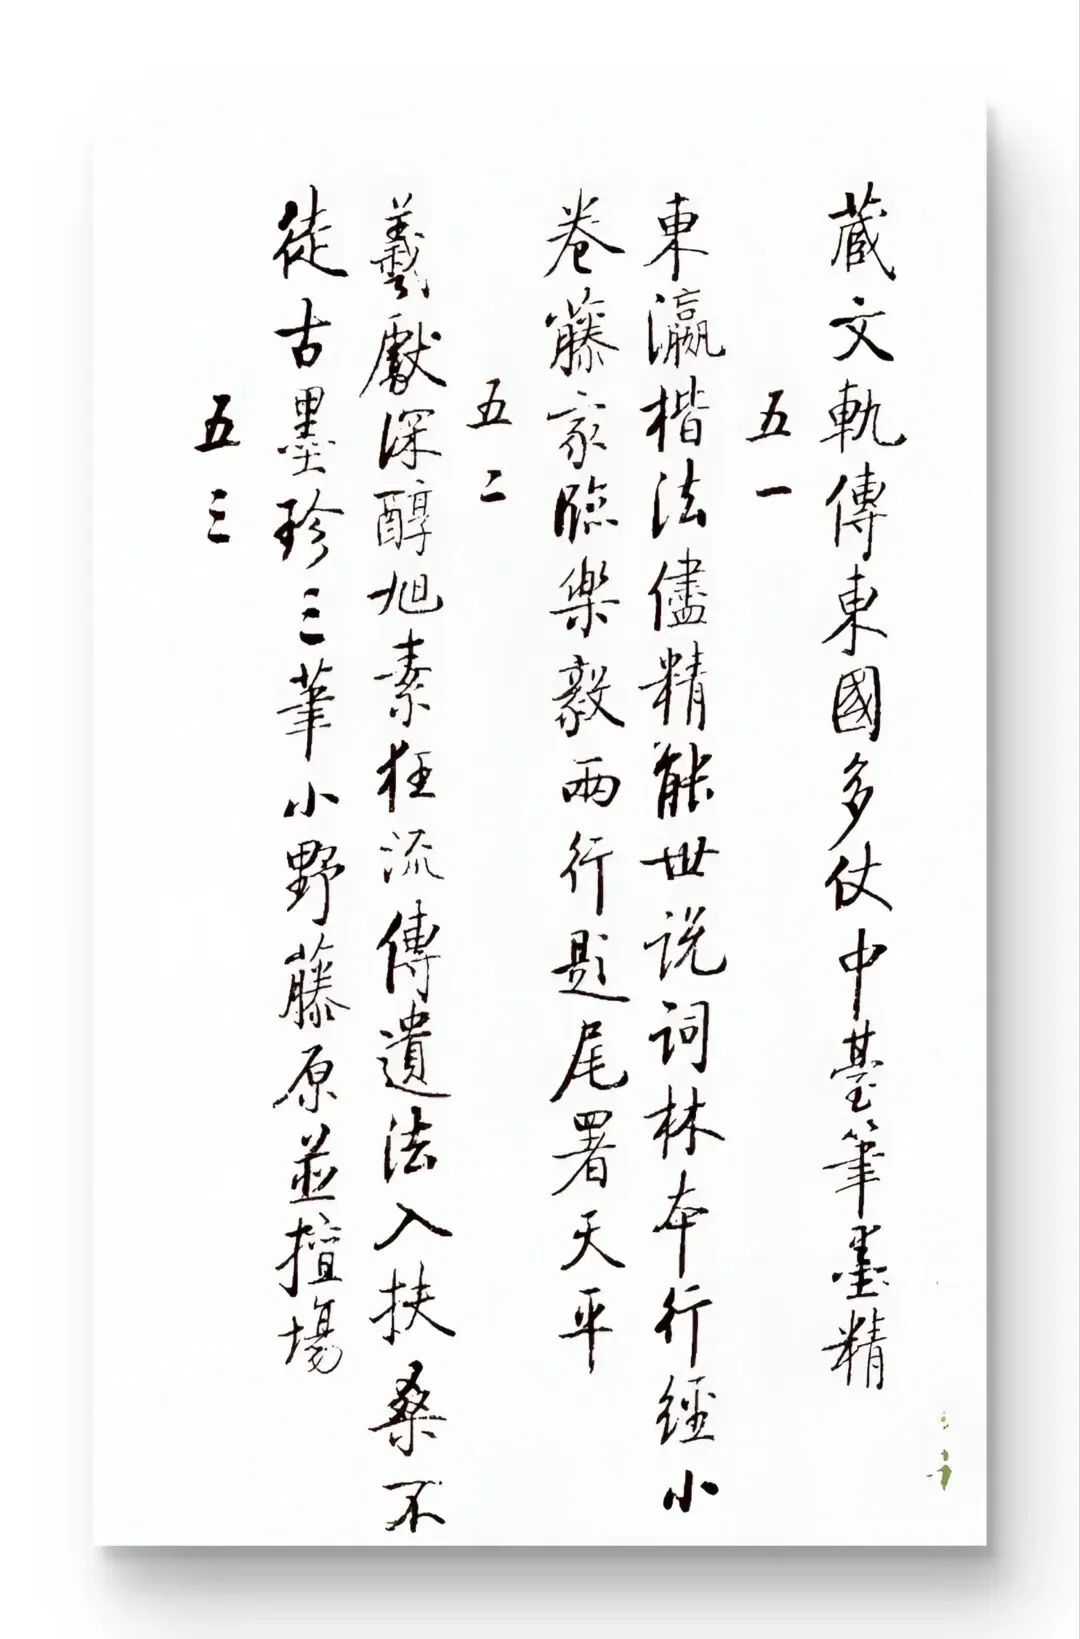 蔵文軌傳東國多仗中臺筆墨精
五一
東瀛楷法儘精能世説詞林本行經小
卷藤家臨樂毅兩行題尾署天平
五二
羲獻深醇旭素狂流傳遺法入扶桑不
徒古墨珍三筆小野藤原並擅場
五三